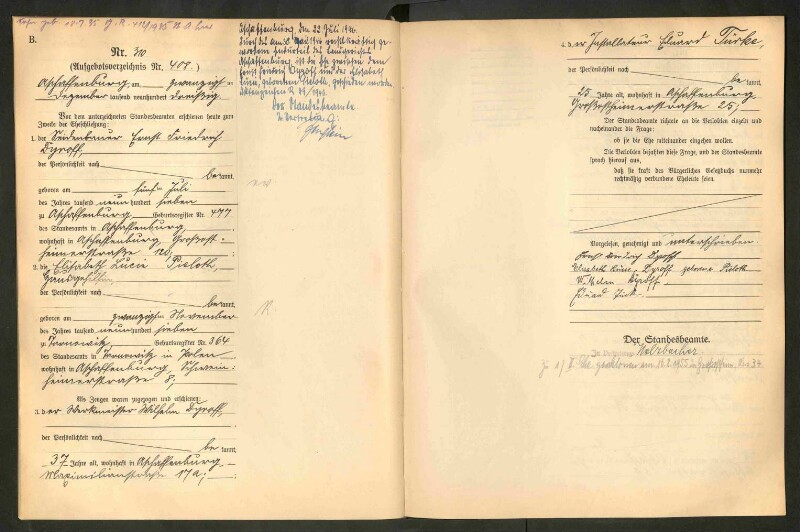 B.
Nr. 310
(Aufgebotsverzeichnis Nr. 408.)
Aschaffenburg, am zwanzigsten
Dezember tausend neunhundert dreißig
Vor dem unterzeichneten Standesbeamten erschienen heute zum
Zwecke der Eheschließung:
1. der Ernst Friedrich
Dyroff,
der Persönlichkeit nach
be kannt,
geboren am fünften Juli
des Jahres tausend neunhundert sieben
zu Aschaffenburg Geburtsregister Nr. 477
des Standesamts in Aschaffenburg,
wohnhaft in Aschaffenburg Großost-
heimerstraße 120,
2. die Elisabeth Lucie Pieloth,
der Persönlichkeit nach
be kannt,
geboren am zwanzigsten November
des Jahres tausend neunhundert sieben
zu Tarnowitz, Geburtsregister Nr. 364
des Standesamts in Tarnowitz in Polen
wohnhaft in Aschaffenburg, Schwein-
heimerstraße 8,
Als Zeugen waren zugezogen und erschienen:
3. der Werkmeister Wilhelm Dyroff,
der Persönlichkeit nach
be kannt,
37 Jahre alt, wohnhaft in Aschaffenburg
Maximilianstraße 17a;
Aschaffenburg, den 22. Juli
Durch das am
Aschaffenburg, ist die Ehe zwischen dem
Ernst Friedrich Dyroff und der Elisabeth
Lucie, geborenen Pieloth, geschieden worden.
Der Standesbeamte
In Vertretung:
4. der Installateur Eduard Türke,
der Persönlichkeit nach
be kannt,
25 Jahre alt, wohnhaft in Aschaffenburg
Großostheimerstraße 25;
Der Standesbeamte richtete an die Verlobten einzeln und
nacheinander die Frage:
ob sie die Ehe miteinander eingehen wollen.
Die Verlobten bejahten diese Frage, und der Standesbeamte
sprach hierauf aus,
daß sie kraft des Bürgerlichen Gesetzbuchs nunmehr
rechtmäßig verbundene Eheleute seien.
Vorgelesen, genehmigt und unterschrieben.
Ernst Friedrich Dyroff
Elisabeth Lucie Dyroff geborene Pieloth
Wilhelm Dyroff
Der Standesbeamte.
In Vertretung:
Zu 1) II. Ehe geschlossen am